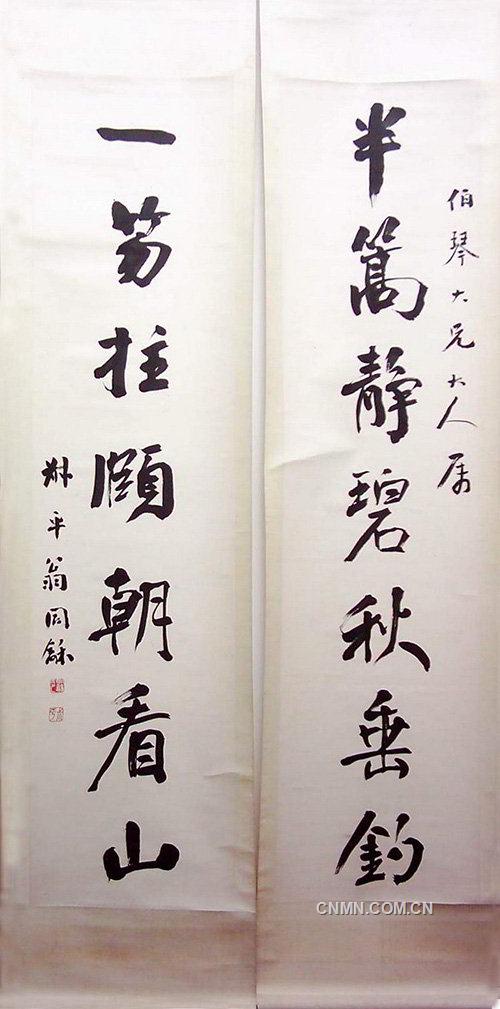 伯琴大兄大人属
半篙静碧秋垂钓
一笏拄颐朝看山
叔平翁同龢
CNMN.COM.CN